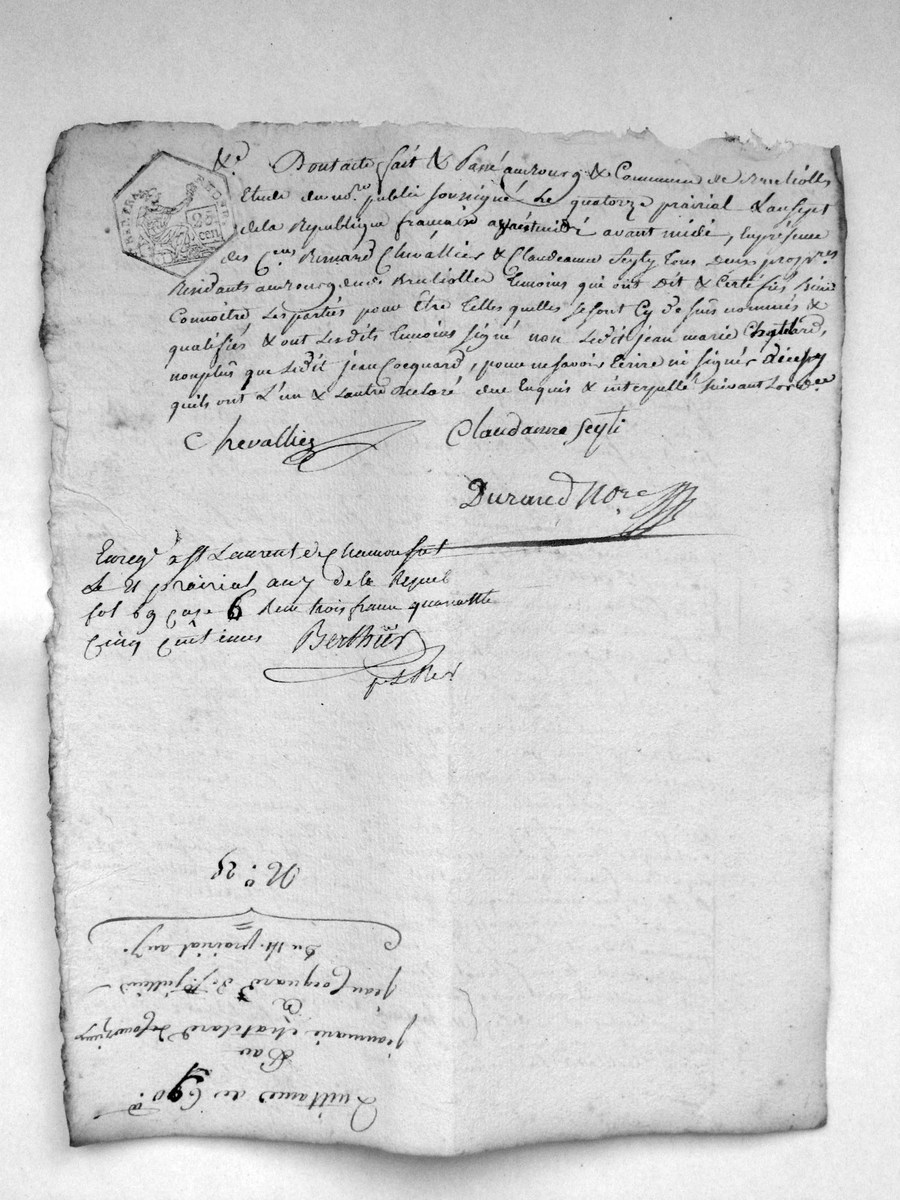 Dont acte fait & Passé au Bourg & Commune de Brulliolles
Etude du no.re public soussigné Le quatorze prairial L'an Sept
de la Republique francaise avant midé, En présence
des C.ens Bernard Chevallier & Claudeanne Seyty tous deux prop.res
Rendants au Bourg dudt Brulioller temoins qui ont Dit & Certifiés Bien
Connoitre Les parties pour Etre telles quelles se sont Cy de sus nommés &
qualifiés & ont Lesdits temoins signé non Ledit jean marie Chatelard,
non plus que Ledit jean Cocquard, pour ne savoir Ecrire ni signer
quils ont L'un & Lautre déclaré due Enquis & interpellé suivant
Chevallier
Claudanne Seyti
Durand No.re
Enreg.é a St Laurent de Chamousset
Le 21 prairial an 7 de la Repub
fol 69 Case 6 Recu trois franc quarante
Cinq Centimes Berthier
N.o 29
Du 14. prairial an 7.
jean Cocquard de St Jullien
A
jeanmarie chatelard
Par
Quittance de 690
25
cen